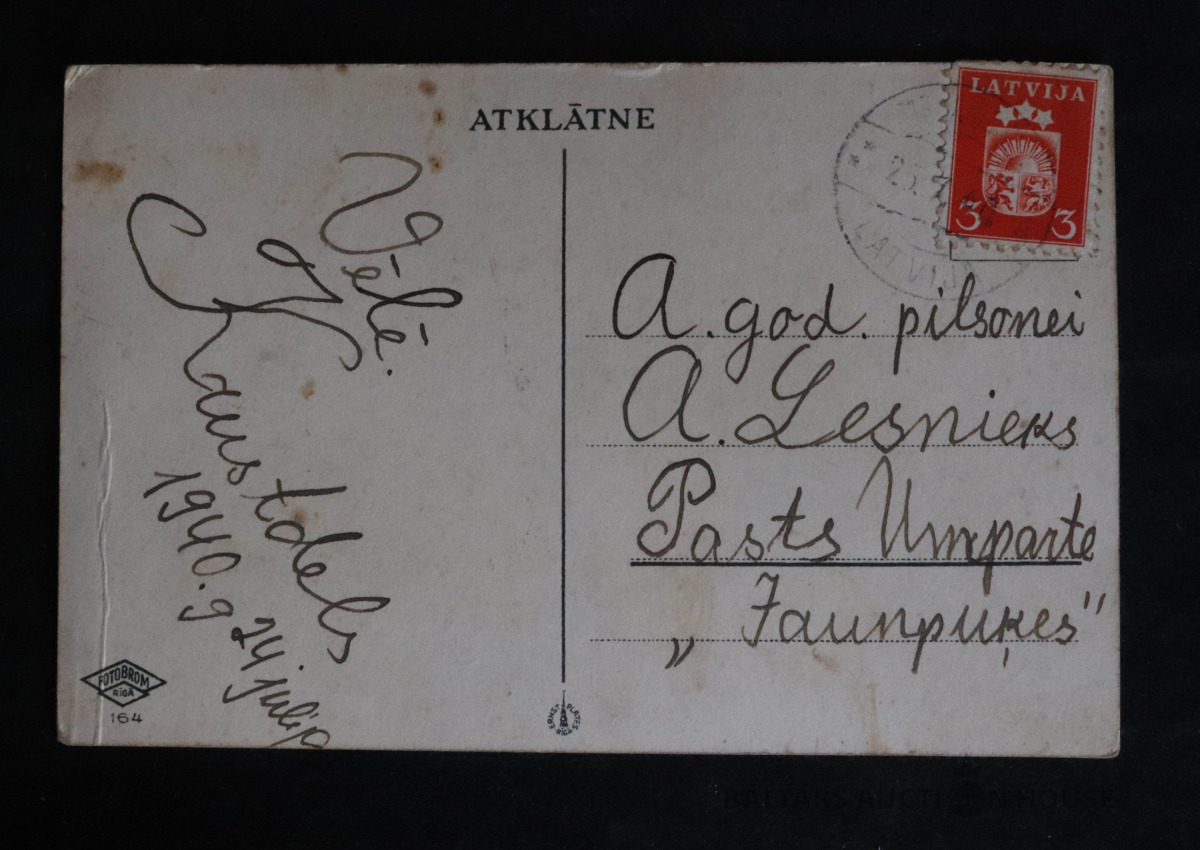 ATKLĀTNE
LATVIJA
3 3
LATVIJA
Vēlē.
Krustdels
1940.g 24 julijā
A. god. pilsonei
A. Lesnieks
Pasts Umparte
„Jaunpuķes"
FOTOBROM
RĪGĀ
164
ERNST PLATES RĪGĀ
BALTARS AUCTION HOUSE